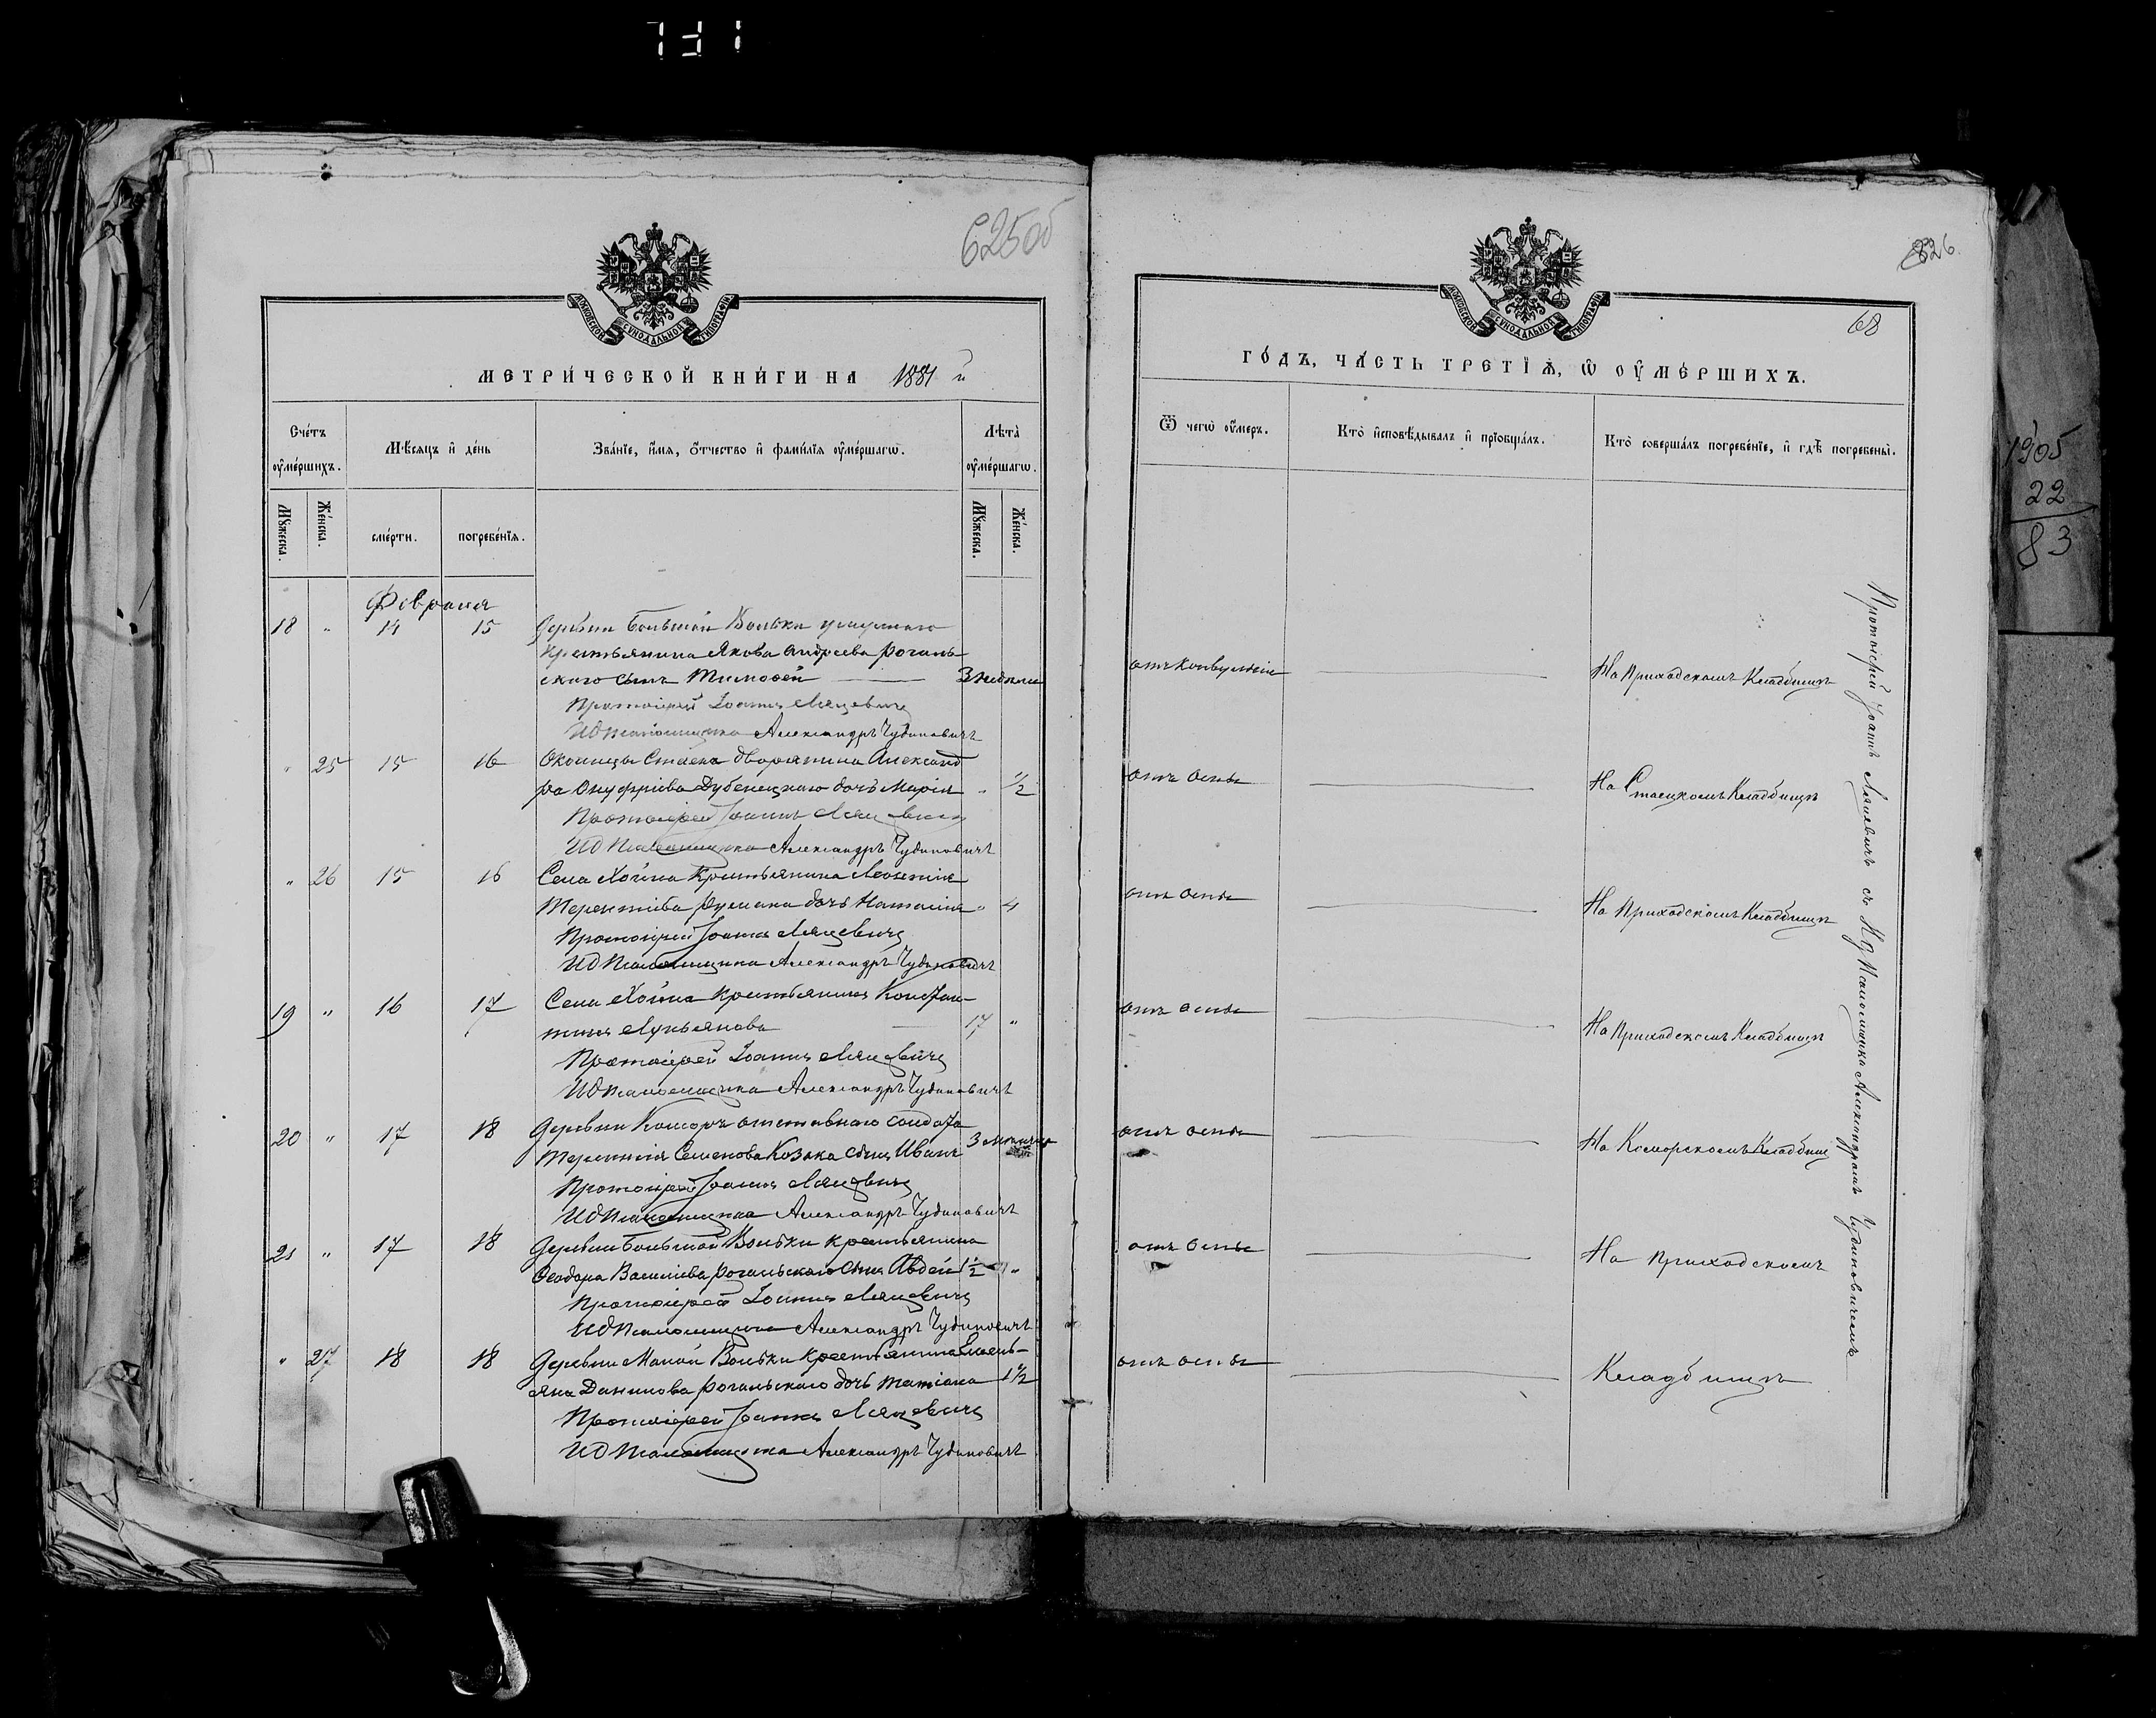 625об
МОСКОВСКОЙ СѴНОДАЛЬНОЙ ТИПОГРАФІИ
МЕТРИ́ЧЕСКОЙ КНИ́ГИ НА 1881 й
Сче́тъ ᲂу҆ме́ршихъ.
Мѣ́сяцъ и҆ де́нь
Зва́нїе, и҆́мя, ѻ҆́тчество и҆ фами́лїя ᲂу҆ме́ршагѡ.
Лѣ́та ᲂу҆ме́ршагѡ.
Мꙋ́жеска.
Же́нска.
сме́рти.
погребе́нїя.
Мꙋ́жеска.
Же́нска.
Февраля
18 " 14 15 Деревни Большой Вольки
крестьянина Якова Андреева Рогаль-
скаго сынъ Тимофей 3 недели
Протоіерей Іоаннъ Ляцевичъ
ИД Псаломщика Александръ Чудиновичъ
" 25 15 16 Околицы Стаека дворянина Александ
ра Онуфріева Дубенецкаго дочь Марія " 1/2
Протоіерей Іоаннъ Ляцевичъ
ИД Псаломщика Александръ Чудиновичъ
" 26 15 16 Села Хойна Крестьянина Леонтія
Терентіева дочь Наталія " 4
Протоіерей Іоаннъ Ляцевичъ
ИД Псаломщика Александръ Чудиновичъ
19 " 16 17 Села Хойна крестьянинъ Констан-
тинъ Лукьянова 17 "
Протоіерей Іоаннъ Ляцевичъ
ИД Псаломщика Александръ Чудиновичъ
20 " 17 18 Деревни Коморъ отставнаго солдата
Терентія Семенова Козака сынъ Иванъ 3
Протоіерей Іоаннъ Ляцевичъ
ИД Псаломщика Александръ Чудиновичъ
21 " 17 18 Деревни Большой Вольки крестьянина
Ѳеодора Василіева Рогальскаго сынъ Авдей 1 1/2 "
Протоіерей Іоаннъ Ляцевичъ
ИД Псаломщика Александръ Чудиновичъ
" 27 18 18 Деревни Малой Вольки Крестьянина Емель-
яна Данилова Рогальскаго дочь Татіана 1 1/2
Протоіерей Іоаннъ Ляцевичъ
ИД Псаломщика Александръ Чудиновичъ
826
68
МОСКОВСКОЙ СѴНОДАЛЬНОЙ ТИПОГРАФІИ
ГО́ДЪ, ЧА́СТЬ ТРЕТЇѦ, Ѽ ОУ҆МЕ́РШИХЪ.
Ѿ чегѡ̀ ᲂу҆́меръ.
Кто̀ и҆сповѣ́дывалъ и҆ прїобща́лъ.
Кто̀ соверша́лъ погребе́нїе, и҆ гдѣ̀ погребены̀.
отъ конвульсіи На Приходскомъ Кладбищѣ
отъ оспы На Стаецкомъ Кладбищѣ
отъ оспы На Приходскомъ Кладбищѣ
отъ оспы На Приходскомъ Кладбищѣ
отъ оспы На Коморскомъ Кладбищ
отъ оспы На Приходскомъ
отъ оспы Кладбищѣ
Протоіерей Іоаннъ Ляцевичъ съ ИД Псаломщика Александромъ Чудиновичемъ
1905
22
83